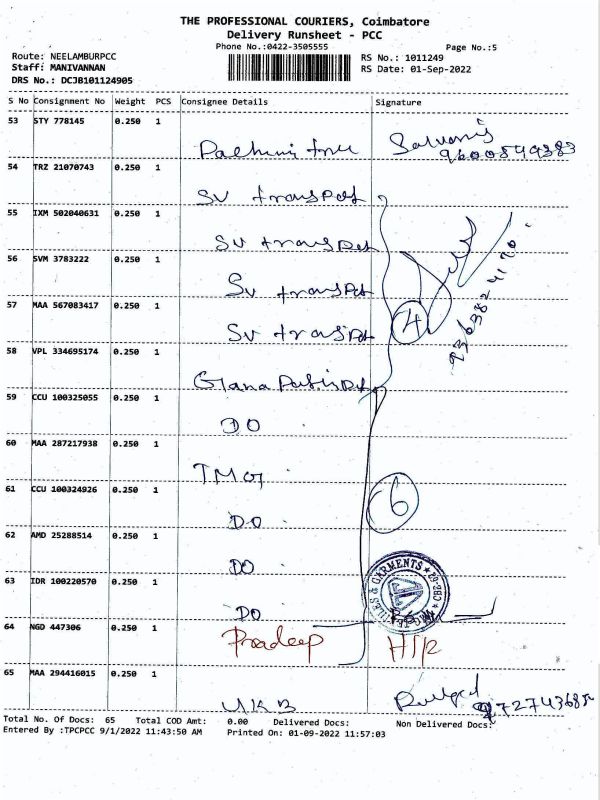 THE PROFESSIONAL COURIERS, Coimbatore
Delivery Runsheet - PCC
Phone No.:0422-3505555 Page No.:5
Route: NEELAMBURPCC RS No.: 1011249
Staff: MANIVANNAN RS Date: 01-Sep-2022
DRS No.: DCJB101124905
S No Consignment No Weight PCS Consignee Details Signature
53 STY 778145 0.250 1
9600899383
54 TRZ 21070743 0.250 1
SV
55 IXM 502040631 0.250 1
SV
56 SVM 3783222 0.250 1
SV
57 MAA 567083417 0.250 1
SV 4
9363824120
58 VPL 334695174 0.250 1
59 CCU 100325055 0.250 1
DO
60 MAA 287217938 0.250 1
61 CCU 100324926 0.250 1
DO 6
62 AMD 25288514 0.250 1
DO
63 IDR 100220570 0.250 1
DO
& GARMENTS
64 NGD 447306 0.250 1
Pradeep
65 MAA 294416015 0.250 1
UKB
Total No. Of Docs: 65 Total COD Amt: 0.00 Delivered Docs: Non Delivered Docs:
Entered By :TPCPCC 9/1/2022 11:43:50 AM Printed On: 01-09-2022 11:57:03